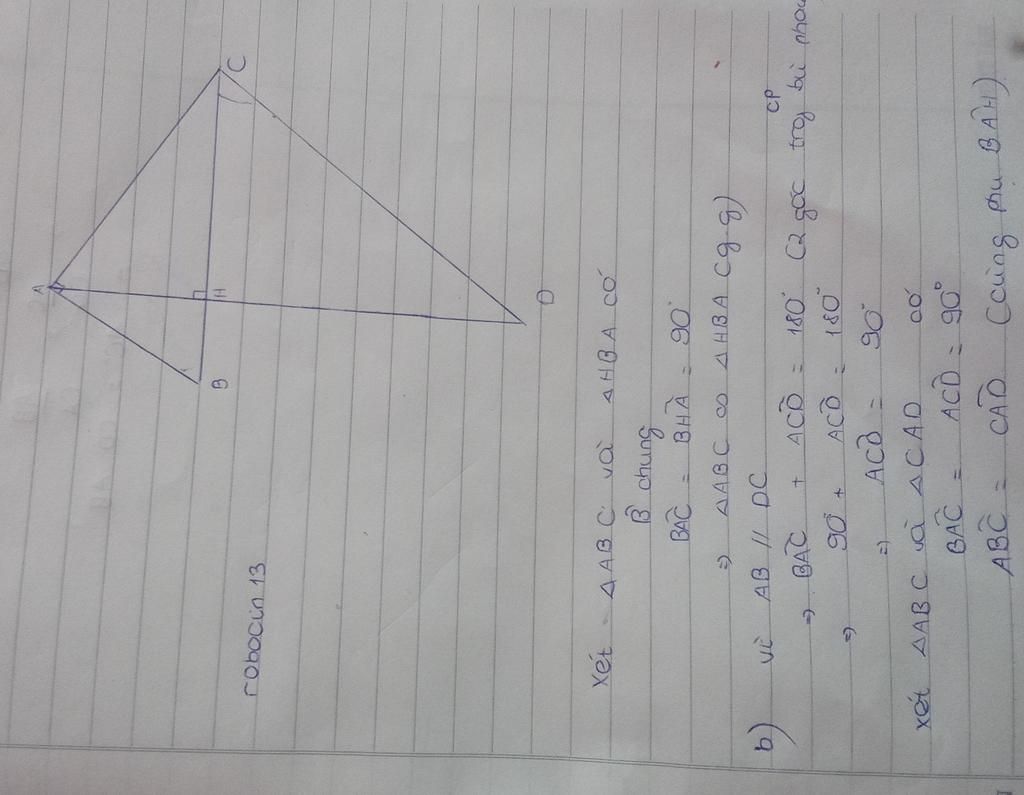 A
B
H
C
D
robocin 13
Xét ΔABC và ΔHBA có
B̂ chung
BÂC = BĤA = 90°
=> ΔABC ∞ ΔHBA (g.g)
b) vì AB // DC
=> BÂC + AĈD = 180° (2 góc trog cp bù nhau
=> 90° + AĈD = 180°
=> AĈD = 90°
xét ΔABC và ΔCAD có
BÂC = AĈD = 90°
AB̂C = CÂD (cùng phụ BÂH)